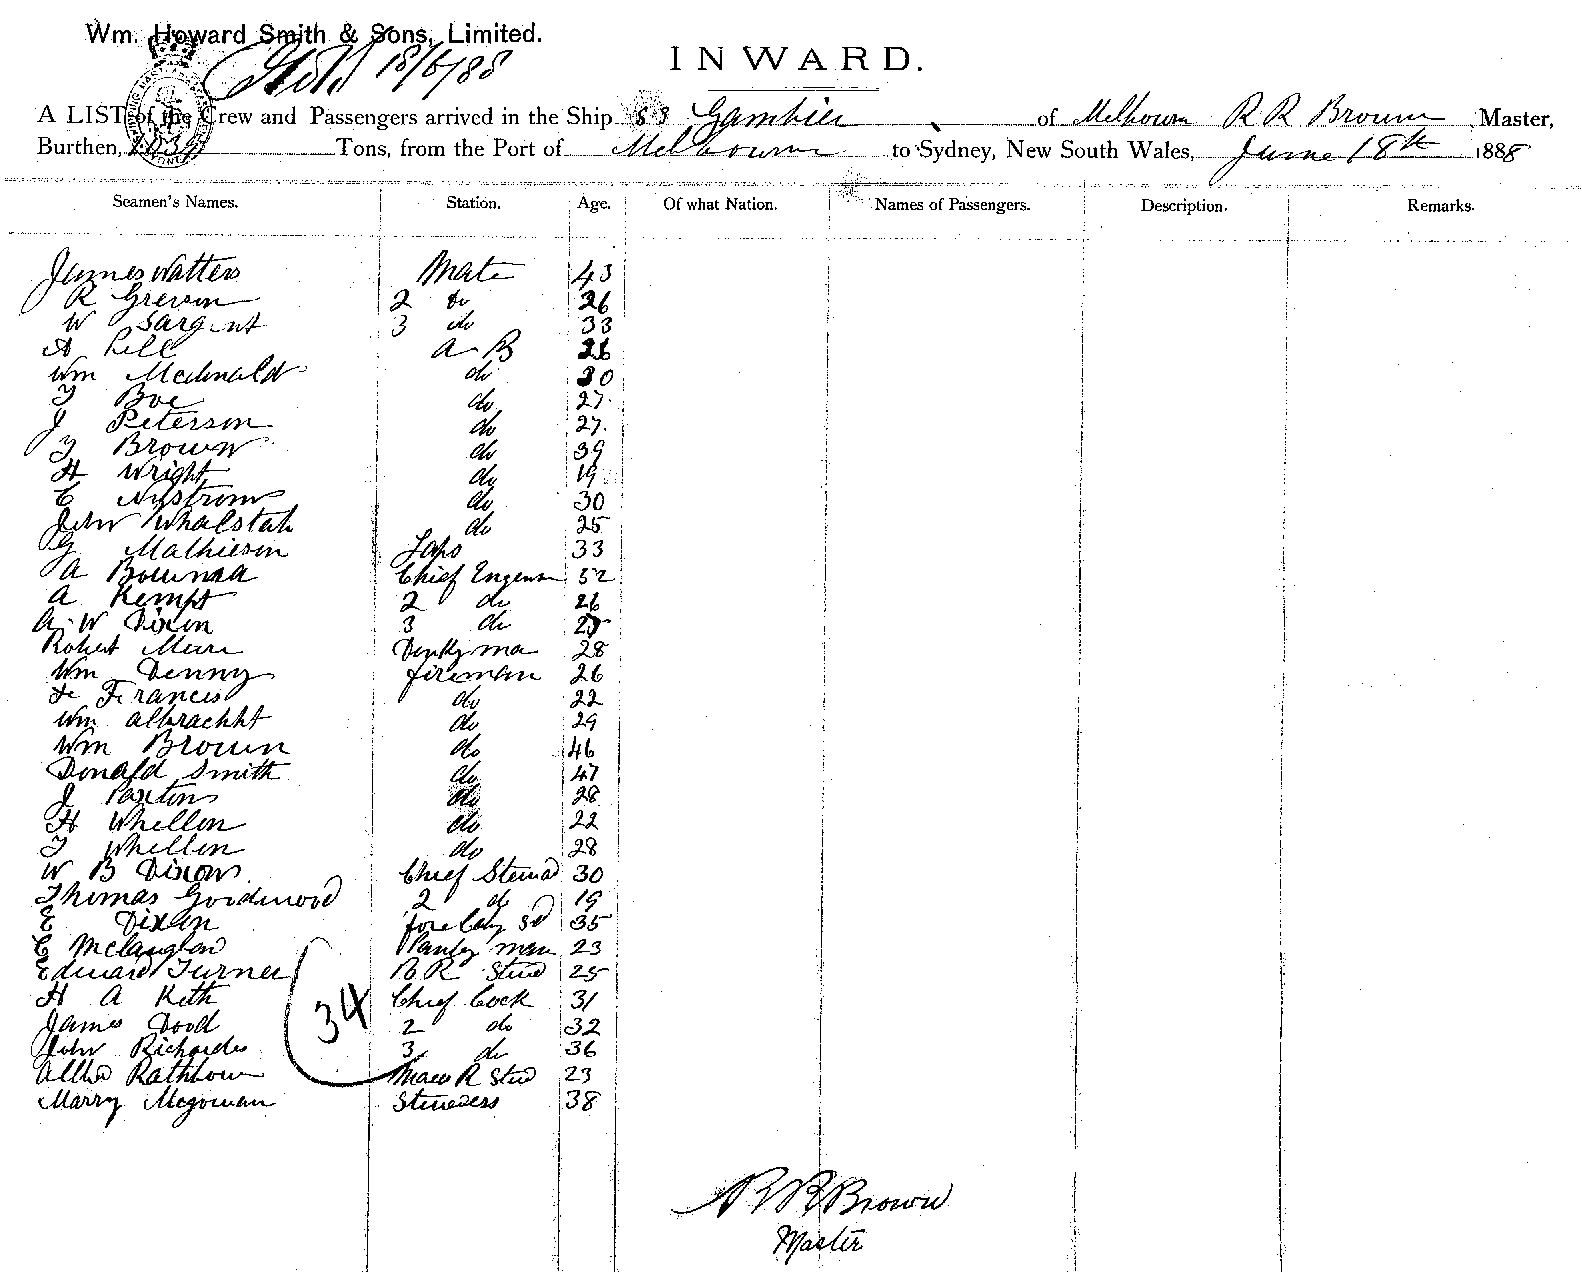 Wm. Howard Smith & Sons, Limited.
18/6/88
INWARD.
A LIST of the Crew and Passengers arrived in the Ship SS Gambier of Melbourn R R Brown Master,
Burthen, Tons, from the Port of Melbourne to Sydney, New South Wales, June 18th 1888
Seamen's Names. Station. Age. Of what Nation. Names of Passengers. Description. Remarks.
James Watters Mate 43
R 2 do 26
W Sargent 3 do 33
A A B 26
Wm Mcdonald do 30
T Boe do 27
J Peterson do 27.
T Brown do 39
H Wright do 19
C Nystrom do 30
John Whalstab do 25
G Mathieson 33
A Bowman Chief 52
A Kempt 2 do 26
A. W Dixon 3 do
Robert Muir Donkyma 28
Wm Denny fireman 26
Francis do 22
Wm albrachht do 29
Wm Brown do 46
Donald Smith do 47
J Paxton do 28
H Whellon do 22
T Whellon do 28
W B Dixon Chief Steward 30
Thomas Goodwood 2 do 19
E Dixon 35
C Mclauglan Pantry man 23
Edward Turner B R Stew 25
H A Keith Chief Cook 31
James Dood 2 do 32
John Richardes 3 do 36
Rathbow R Stew 23
Marry Mcgowan Stewedess 38
34
R R Brown
Master